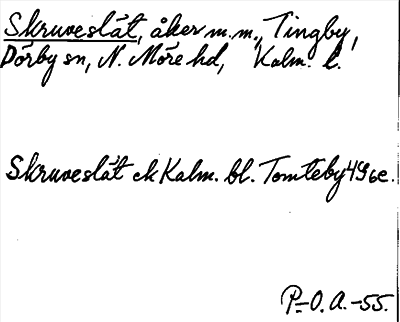 Skruveslät, åker m.m., Tingby,
Dörby sn, N. Möre hd, Kalm. l.
Skruveslät ek Kalm. bl. Tomteby 4g6e.
P-O.A.-55.